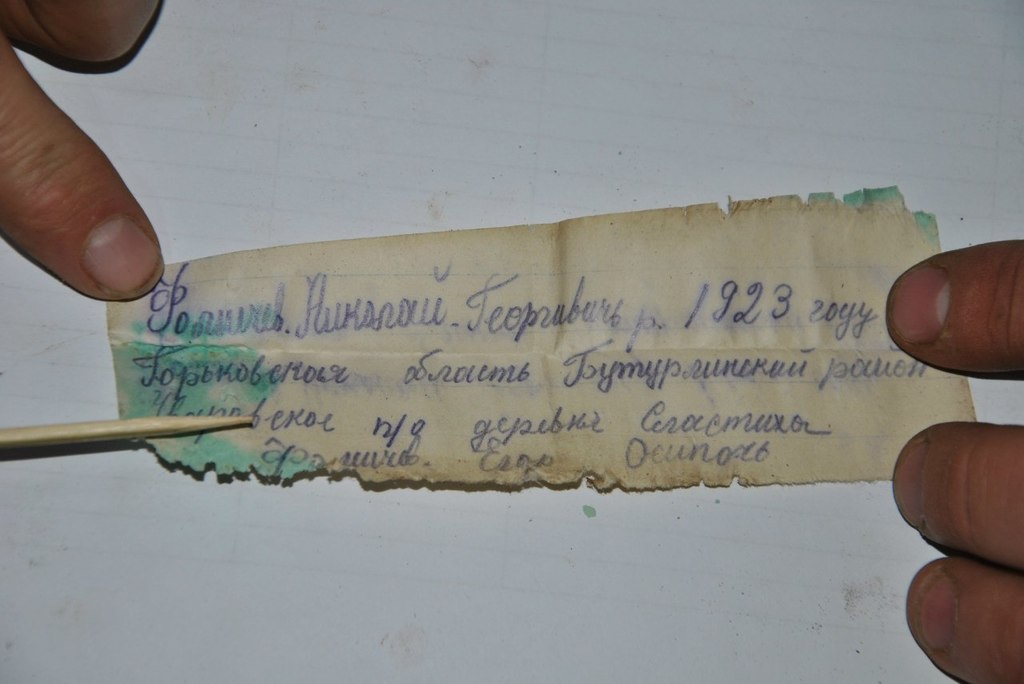 Фомичев. Николай - Георгивичь р. 1923 году
Горьковская область Бутурлинский район
п/о деревне Сластиха
Фомичев. Егор Осипочь